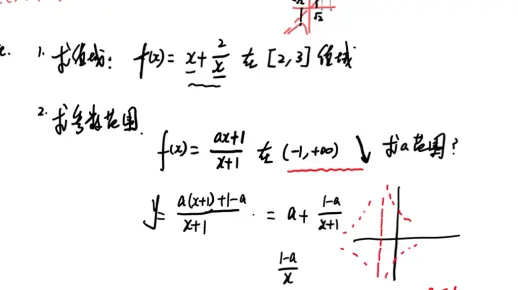 √2
1. 求值域: f(x) = x + 2/x 在 [2,3] 值域
2. 求参数范围.
f(x) = (ax+1)/(x+1) 在 (-1,+∞) ↓ 求a范围?
y = (a(x+1)+1-a)/(x+1) = a + (1-a)/(x+1)
(1-a)/x